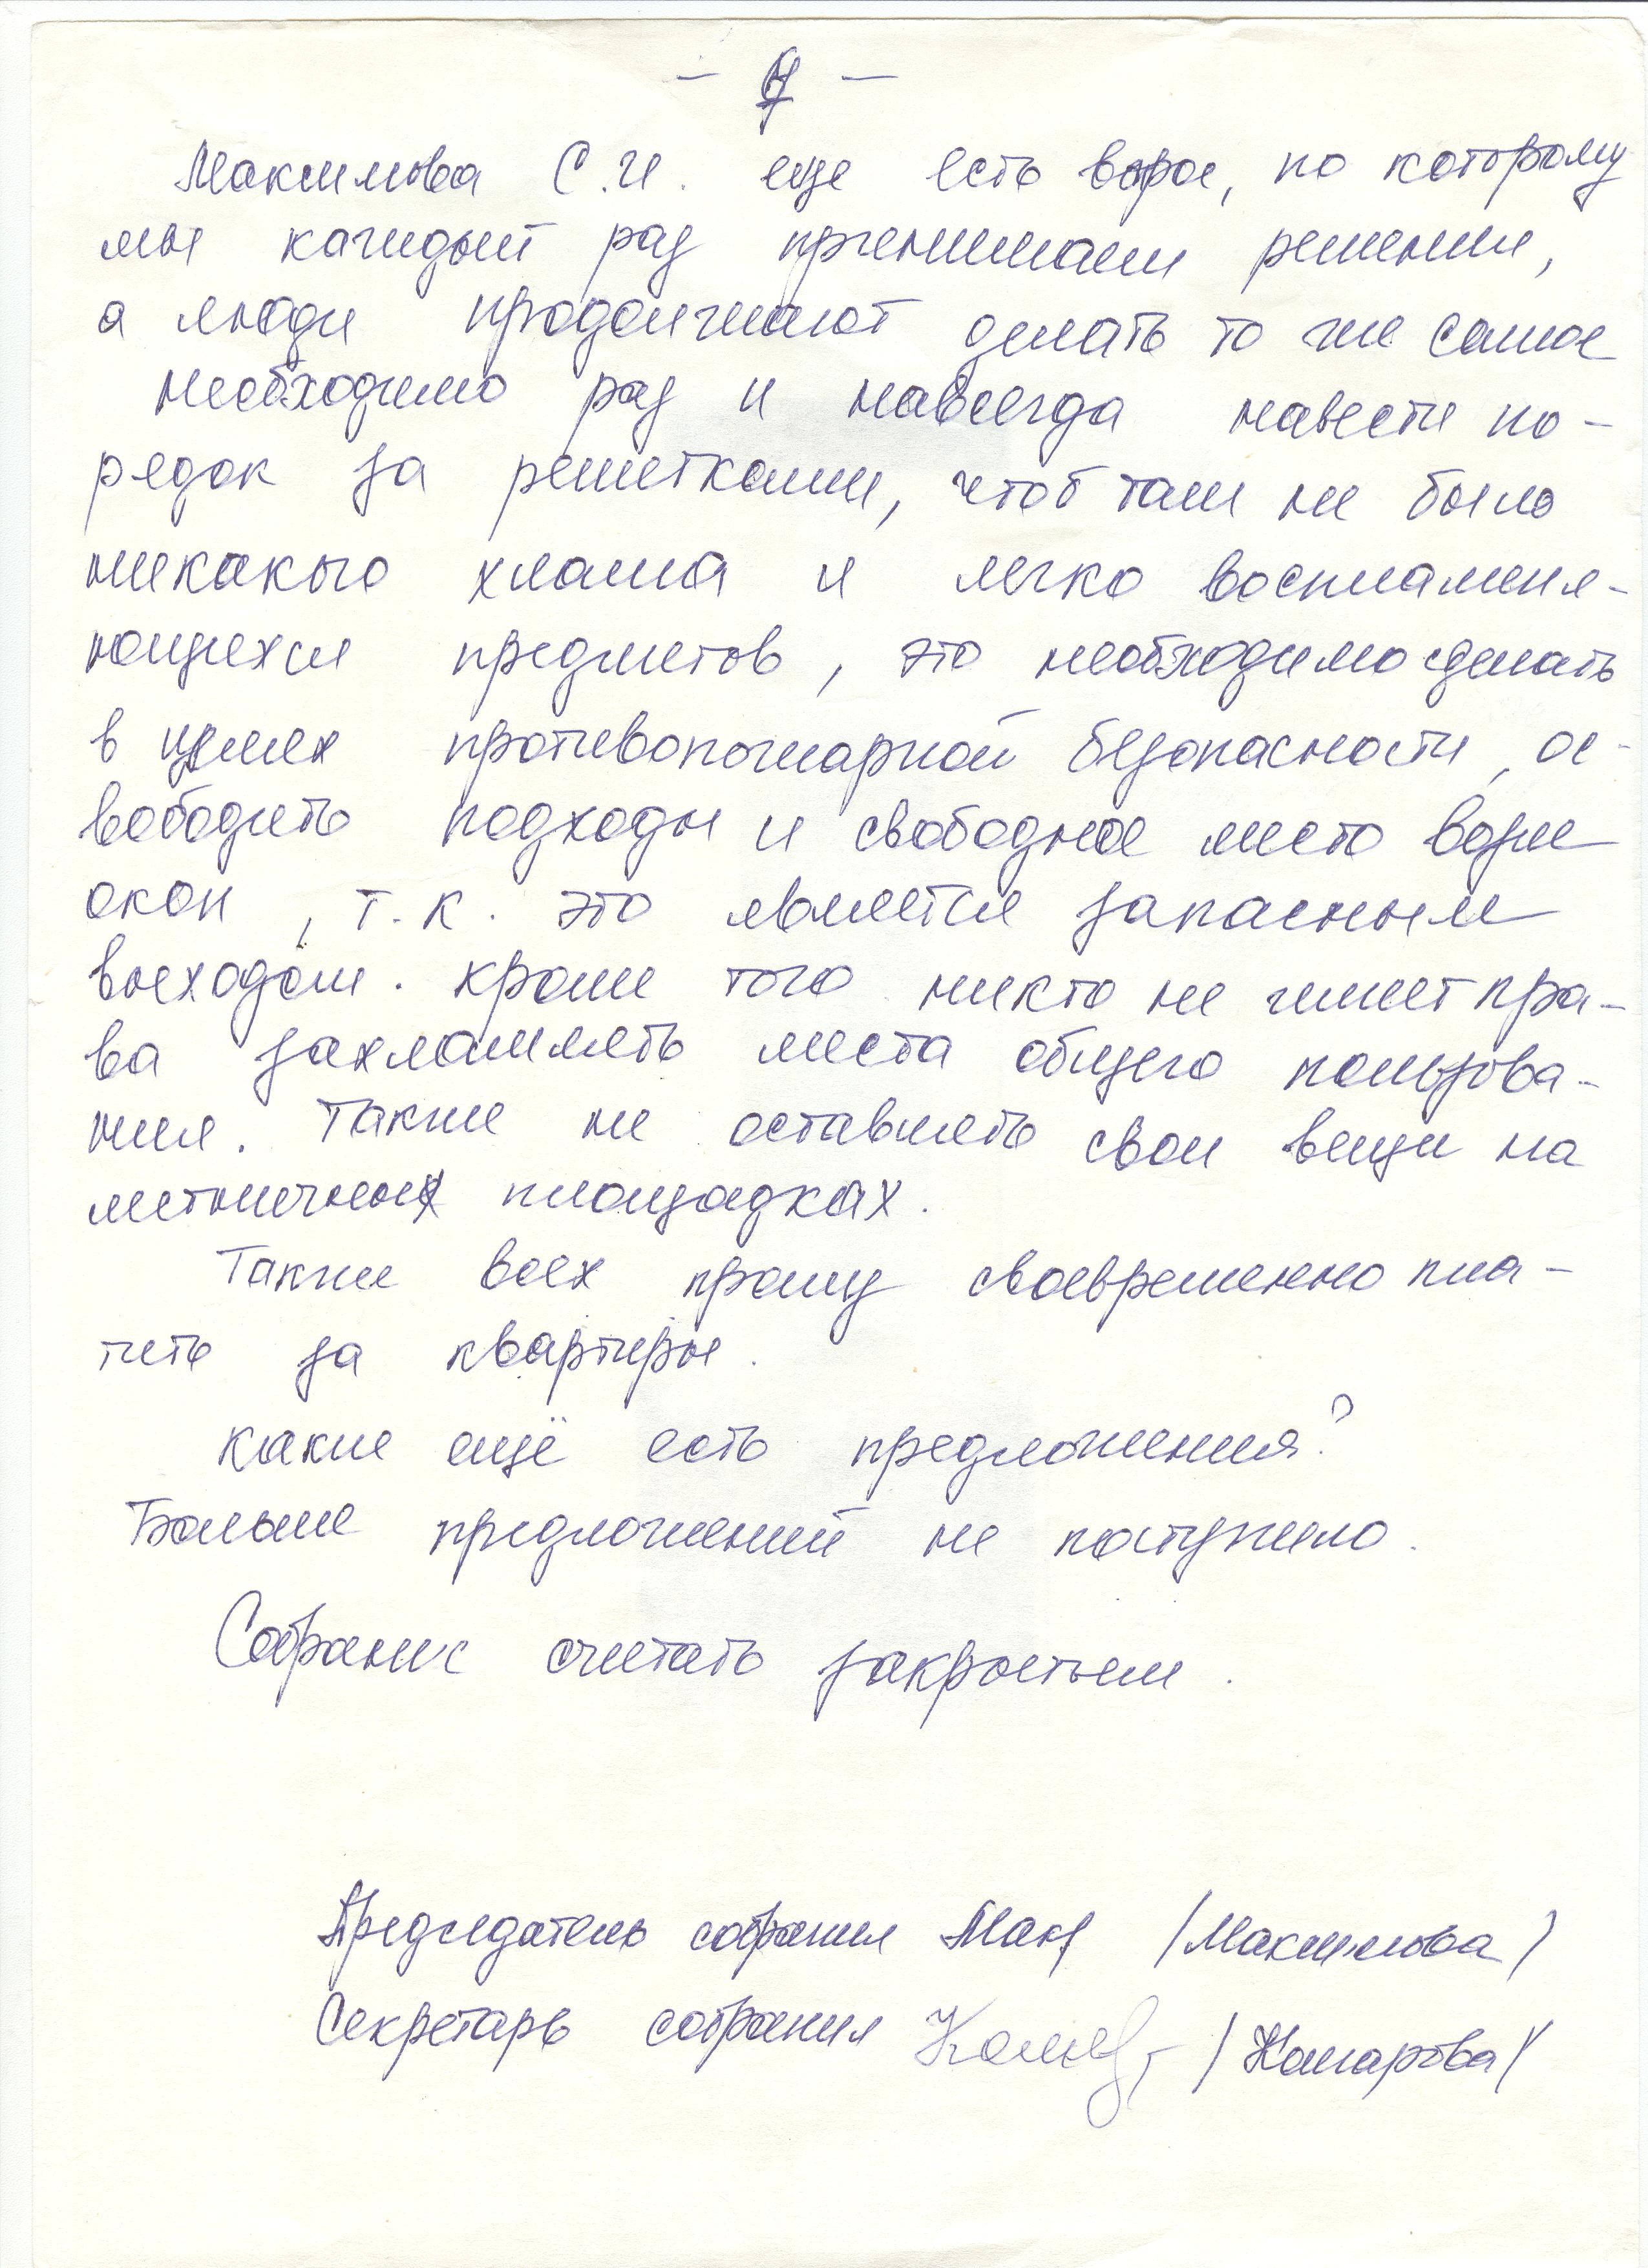 Максимова С.И. еще есть ворос, по которому
мы каждый раз пренимаем решении,
а люди продолжают делать то же самое
необходимо раз и навсегда навести по-
редок за решетками, чтоб там не было
никакого хлама и легко воспламеня-
ющехся предметов, это необходимо сделать
в целях противопожарной безопасности, ос-
вободить подходы и свободное место возле
окон, т.к. это является запасным
выходом. Кроме того никто не имеет пра-
ва захламлять места общего пользова-
ния. Также не оставлять свои вещи на
летничных площадках.
Также всех прошу своевременно пла-
тить за квартиры.
Какие ещё есть предложения?
Больше предложений не поступило.
Собрание считать закрытым.
Председатель собрания Мак /Максимова/
Секретарь собрания /Комарова/